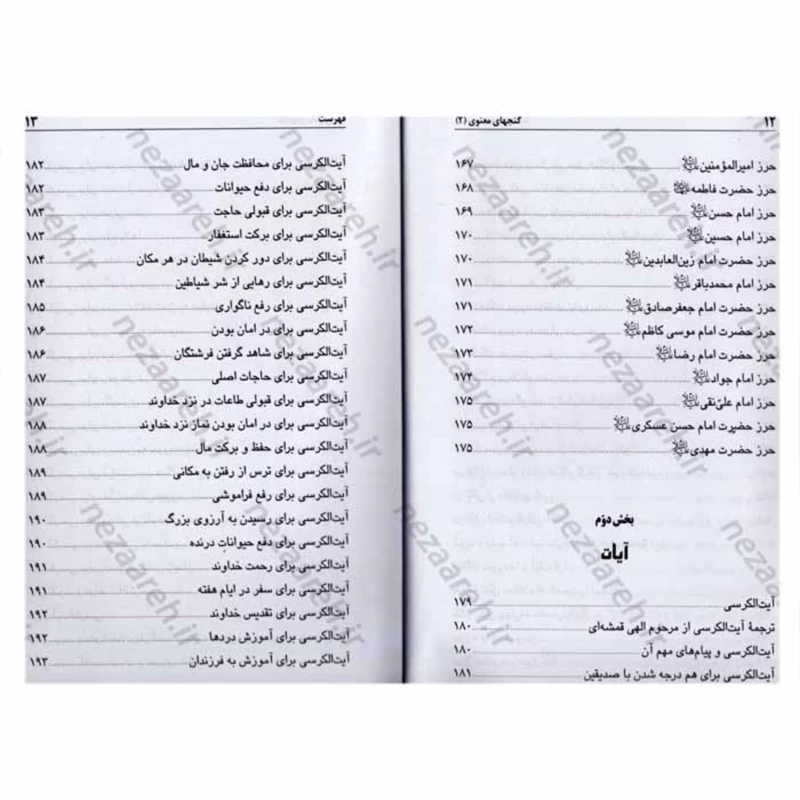 ۱۲ گنجهای معنوی (۲)
حرز امیرالمؤمنین ۱۶۷
حرز حضرت فاطمه ۱۶۸
حرز امام حسن ۱۶۹
حرز امام حسین ۱۷۰
حرز حضرت امام زین‌العابدین ۱۷۰
حرز امام محمدباقر ۱۷۱
حرز حضرت امام جعفرصادق ۱۷۱
حرز حضرت امام موسی کاظم ۱۷۲
حرز حضرت امام رضا ۱۷۳
حرز امام جواد ۱۷۴
حرز امام علی‌نقی ۱۷۵
حرز حضرت امام حسن عسکری ۱۷۵
حرز حضرت مهدی ۱۷۵
بخش دوّم
آیات
آیت‌الکرسی ۱۷۹
ترجمهٔ آیت‌الکرسی از مرحوم الهی قمشه‌ای ۱۸۰
آیت‌الکرسی و پیام‌های مهم آن ۱۸۰
آیت‌الکرسی برای هم درجه شدن با صدیقین ۱۸۱
فهرست ۱۳
آیت‌الکرسی برای محافظت جان و مال ۱۸۲
آیت‌الکرسی برای دفع حیوانات ۱۸۲
آیت‌الکرسی برای قبولی حاجت ۱۸۳
آیت‌الکرسی برای برکت استغفار ۱۸۳
آیت‌الکرسی برای دور کردن شیطان در هر مکان ۱۸۴
آیت‌الکرسی برای رهایی از شر شیاطین ۱۸۴
آیت‌الکرسی برای رفع ناگواری ۱۸۵
آیت‌الکرسی برای در امان بودن ۱۸۶
آیت‌الکرسی برای شاهد گرفتن فرشتگان ۱۸۶
آیت‌الکرسی برای حاجات اصلی ۱۸۷
آیت‌الکرسی برای قبولی طاعات در نزد خداوند ۱۸۷
آیت‌الکرسی برای در امان بودن نماز نزد خداوند ۱۸۸
آیت‌الکرسی برای حفظ و برکت مال ۱۸۸
آیت‌الکرسی برای ترس از رفتن به مکانی ۱۸۹
آیت‌الکرسی برای رفع فراموشی ۱۸۹
آیت‌الکرسی برای رسیدن به آرزوی بزرگ ۱۹۰
آیت‌الکرسی برای دفع حیوانات درنده ۱۹۰
آیت‌الکرسی برای رحمت خداوند ۱۹۱
آیت‌الکرسی برای سفر در ایام هفته ۱۹۱
آیت‌الکرسی برای تقدیس خداوند ۱۹۲
آیت‌الکرسی برای آموزش دردها ۱۹۲
آیت‌الکرسی برای آموزش به فرزندان ۱۹۳
nezaareh.ir